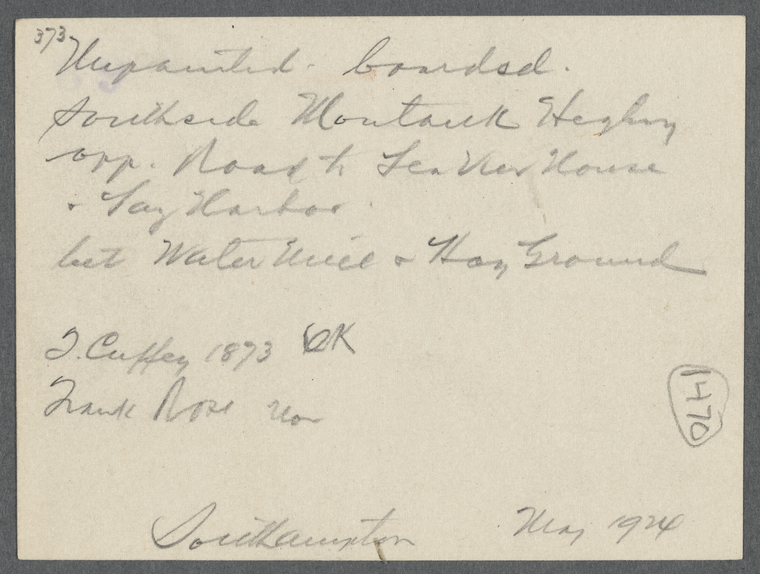 373
Unpainted. boarded.
Southside Montauk Heghwy
opp. Road to Sea View House
& Sag Harbor.
bet Water Mill & Hay Ground
J. Cuffey 1873 OK
Frank Rose now
1470
Southampton May 1924